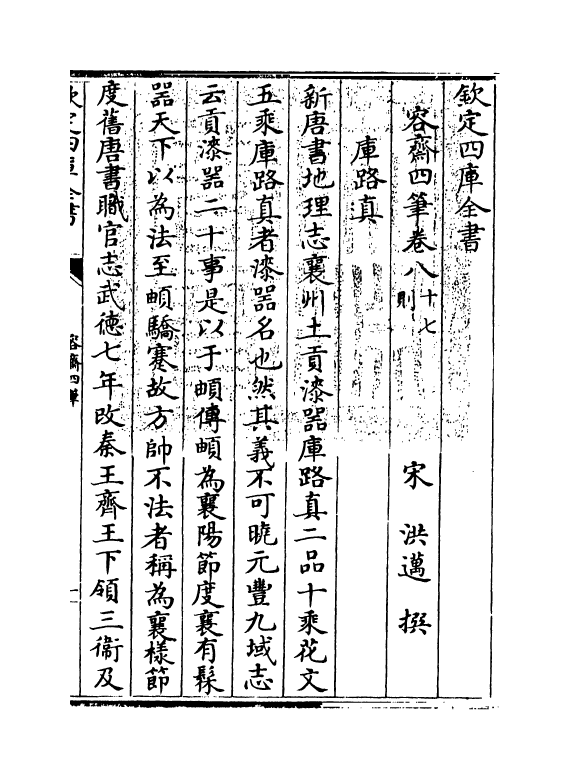 欽定四庫全書
容齋四筆卷八十七則
宋洪邁撰
庫路真
新唐書地理志襄州土貢漆器庫路真二品十乘花文
五乘庫路真者漆器名也然其義不可曉元豐九域志
云貢漆器二十事是以于頔傳頔為襄陽節度襄有髹
器天下以為法至頔驕蹇故方帥不法者稱為襄様節
度舊唐書職官志武徳七年改秦王齊王下領三衞及
欽定四庫全書
容齋四筆
一